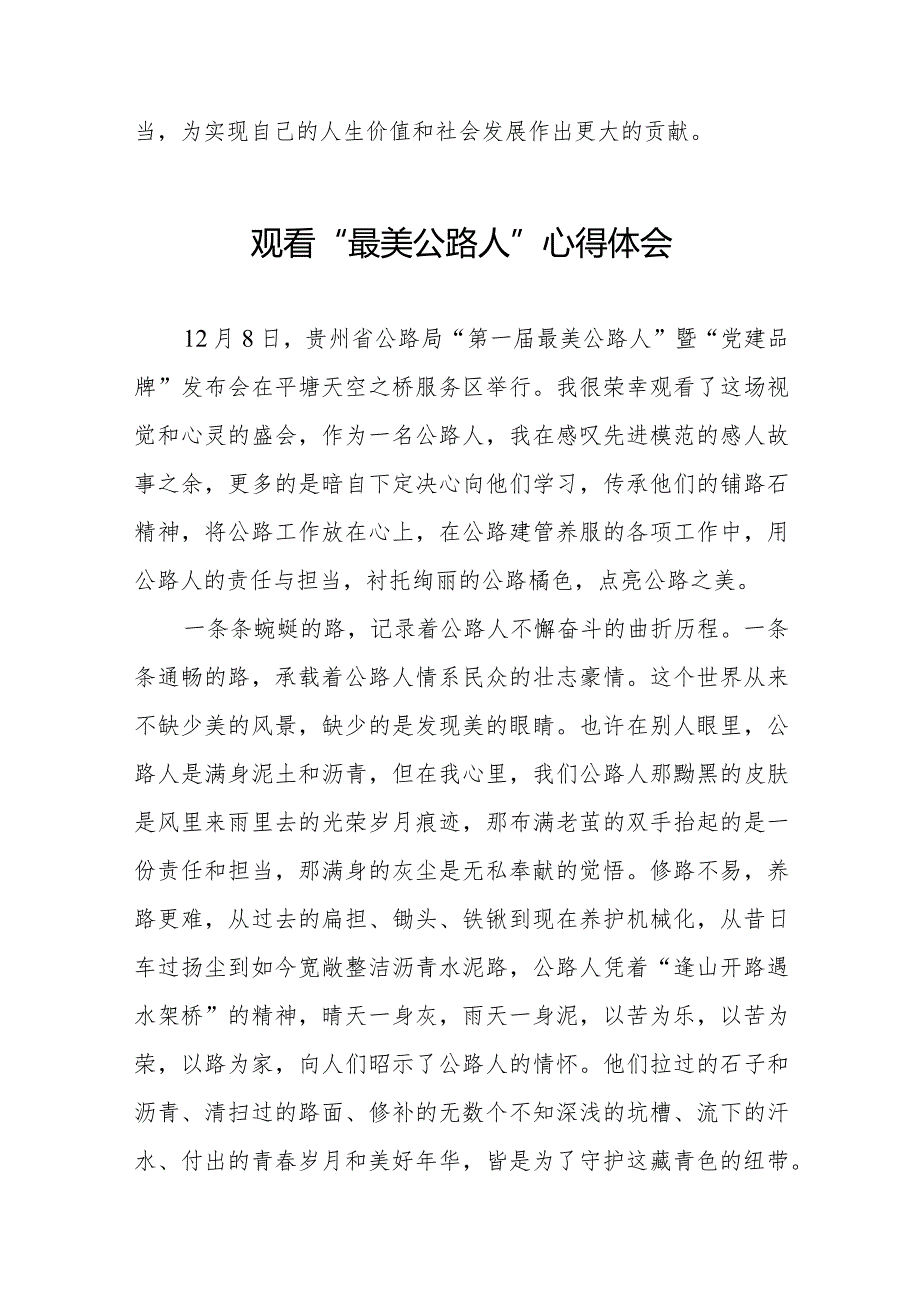 当，为实现自己的人生价值和社会发展作出更大的贡献。
观看“最美公路人”心得体会
12月8日，贵州省公路局“第一届最美公路人”暨“党建品
牌”发布会在平塘天空之桥服务区举行。我很荣幸观看了这场视
觉和心灵的盛会，作为一名公路人，我在感叹先进模范的感人故
事之余，更多的是暗自下定决心向他们学习，传承他们的铺路石
精神，将公路工作放在心上，在公路建管养服的各项工作中，用
公路人的责任与担当，衬托绚丽的公路橘色，点亮公路之美。
一条条蜿蜒的路，记录着公路人不懈奋斗的曲折历程。一条
条通畅的路，承载着公路人情系民众的壮志豪情。这个世界从来
不缺少美的风景，缺少的是发现美的眼睛。也许在别人眼里，公
路人是满身泥土和沥青，但在我心里，我们公路人那黝黑的皮肤
是风里来雨里去的光荣岁月痕迹，那布满老茧的双手抬起的是一
份责任和担当，那满身的灰尘是无私奉献的觉悟。修路不易，养
路更难，从过去的扁担、锄头、铁锹到现在养护机械化，从昔日
车过扬尘到如今宽敞整洁沥青水泥路，公路人凭着“逢山开路遇
水架桥”的精神，晴天一身灰，雨天一身泥，以苦为乐，以苦为
荣，以路为家，向人们昭示了公路人的情怀。他们拉过的石子和
沥青、清扫过的路面、修补的无数个不知深浅的坑槽、流下的汗
水、付出的青春岁月和美好年华，皆是为了守护这藏青色的纽带。